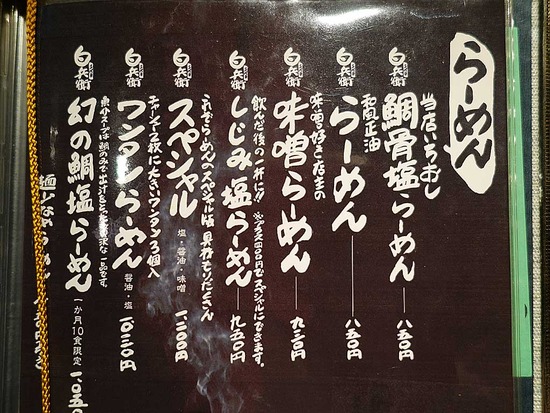 らーめん
当店いちおし
白兵衛 鯛骨塩らーめん 八五〇円
和風正油
白兵衛 らーめん 八五〇円
味噌好き店主の
白兵衛 味噌らーめん 九三〇円
飲んだ後の一杯に!! ※プラス四〇〇円でスペシャルにできます。
白兵衛 しじみ塩らーめん 九五〇円
これぞらーめんのスペシャル版 具材もりだくさん
白兵衛 スペシャル 塩・醤油・味噌 一、二〇〇円
チャーシュー2枚に大きいワンタン3個入
白兵衛 ワンタンらーめん 醤油・塩 一〇三〇円
魚介スープは鯛のみで出汁をとった贅沢な一品です。
白兵衛 幻の鯛塩らーめん 一か月10食限定 一、〇五〇